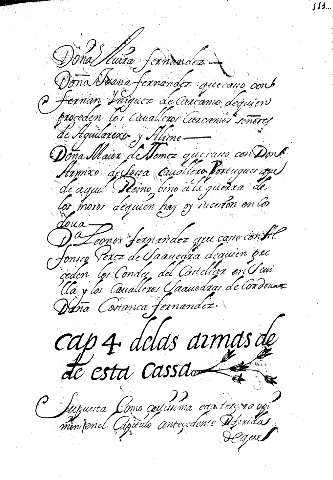 Doña Elvira fernandez
Doña Juana fernandez que caso con
fernan Yñiguez de Carcamo de quien
proceden los Cavalleros Carcamos señores
de Aguilarexo y Alime
Doña Maior de Temez que caso con Don
Ramiro de Cavallero Portugues que
de aquel Reino vino a la guerra de
los moros de quien hay sucesion en Cor
doua
Dª Leonor fernandez que caso con Al
fonso Perez de Saavedra de quien pro
ceden los Condes del Castellar en Sevi
lla y los Cavalleros Saavedras de Cordoua
Doña Costança fernandez
cap 4 de las armas de
de esta Cassa
Supuesta Como
men en el Capitulo antecedente Referidas